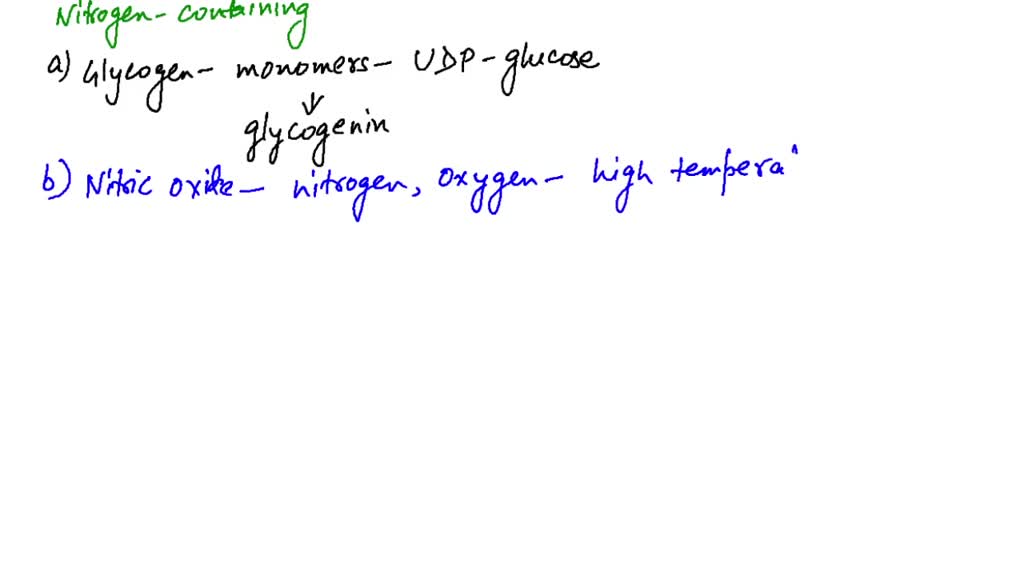 Nitrogen- containing
a) Glycogen- monomers- UDP-glucose
glycogenin
b) Nitric oxide- nitrogen, oxygen- high tempera